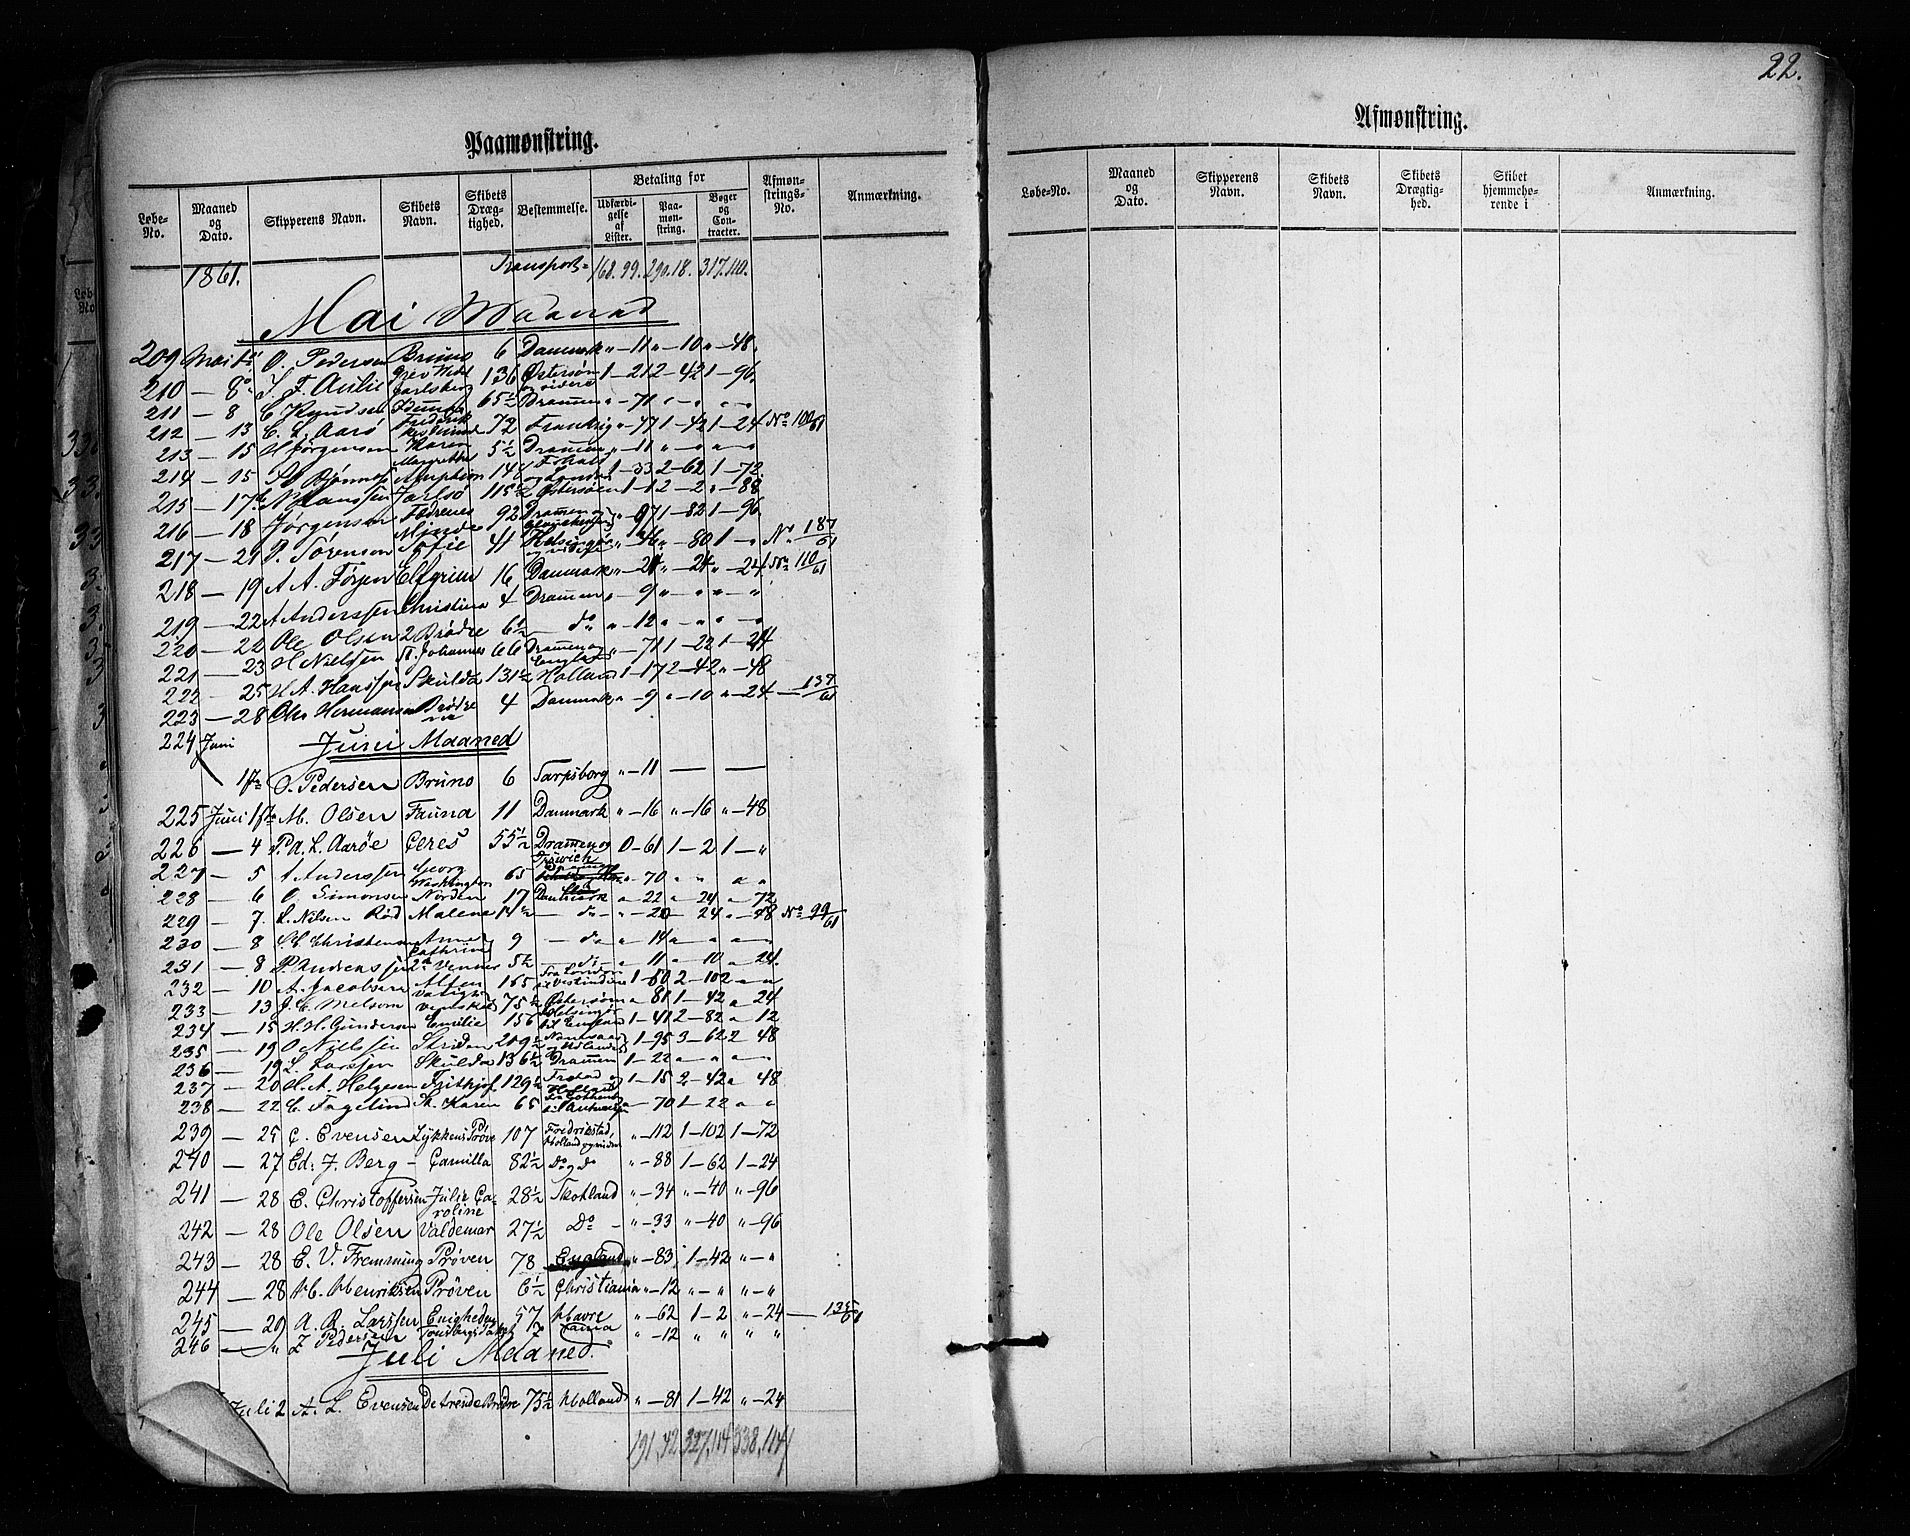 22.
Paamønstring.
Løbe-No. Maaned og Dato. Skipperens Navn. Skibets Navn. Skibets Drægtighed. Bestemmelse. Betaling for Udfærdigelse af Lister. Paamønstring. Bøger og Contracter. Afmønstrings-No. Anmærkning.
1861. Transport= 168.99. 290.18. 317.110.
Mai Maaned
209 Mai O. Pedersen Bruno 6 Danmark " — 11 " — 10 " — 48
210 — 8 136 Østersøen og videre 1 — 21 2 — 42 1 — 96
211 — 8 C Knudsen 65½ Drammen " — 71 " — " — "
212 — 13 C. L. Aarö Frederik 72 Frankrig " — 77 1 — 42 1 — 24 No 100/61
213 — 15 H Jörgensen Karen Margrethe 5½ Drammen " — 11 " — " — "
214 — 15 146 1 — 33 2 — 62 1 — 72
215 — 17 N Hanssen Jarlsö 115½ Østersøen 1 — 12 — 2 " — 88
216 — 18 Jørgensen Fædrenes Minde 92 Drammen og " — 97 1 — 82 1 — 96
217 — 21 P. Sörenson Sofie 41 Helsingör og videre " — 46 " — 80 1 — " No 187/61
218 — 19 A A. Elfgrim 16 Danmark " — 21 " — 24 " — 24 No 110/61
219 — 22 A Anderssen Christina 4 Drammen " — 9 " — " "
220 — 22 Ole Olsen 2 Brödre 6½ — do " — 12 " — " — "
221 — 23 H Nielssen St. Johannes 66 Drammen og England " — 71 1 — 22 1 — 24
222 — 25 H A. Hanssen Skulda 131½ Holland 1 — 17 2 — 42 " — 48
223 — 28 Ole Hermansen Brödrene 4 Danmark " — 9 " — 10 " — 24 — 137/61
224 Juni Juni Maaned
1ste O. Pedersen Bruno 6 Sarpsborg " — 11 — —
225 Juni 1ste M. Olsen Fauna 11 Danmark " — 16 " — 16 " — 48
226 — 4 P. A. L. Aarøe Ceres 55½ Drammen og Ipswich 0 — 61 1 — 2 1 — "
227 — 5 A Anderssen Georg Washington 65 Drammen " — 70 " " " "
228 — 6 O Simonsen Norden 17 Danmark " — 22 " — 24 " — 72
229 — 7. L. Nilsen Röd Malene 14½ — do — " — 20 — 24 " — 48 No 99/61
230 — 8 Christensen Anne Cathrine 9 — do " — 14 " — " — "
231 — 8 P. Andreassen 2de Venner 5½ — do " — 11 " — 10 " — 24.
232 — 10 A. Jacobsen Alfen 165 Fra London til Vestindien 1 — 50 2 — 102 " — "
233 — 13 J. C. Melsom 75½ Østersøen " — 81 1 — 42 " — 24
234 — 15 H. H. Gundersen Emilie 156 Helsingör til England 1 — 41 2 — 82 " — 12
235 — 19 O Nielssen Skriden 209½ 1 — 95 3 — 62 2 48
236 — 19 L. Larssen Skulda 136½ Drammen 1 — 22 " — " — "
237 — 20 H. A. Helgesen Frithjof 129½ Holland 1 — 15 2 — 42 " 48
238 — 22 C. Fagelund St. Karen 65 " — 70 1 — 22 " "
239 — 25 C. Evensen Lykkens Prøve 107 Fredrikstad, Holland og videre " — 112 1 — 102 1 — 72
240 — 27 Ed: J. Berg — Camilla 82½ do og do " — 88 1 — 62 1 — 24
241 — 28 E. Christoffersen Julie Caroline 28½ Skotland " — 34 " — 40 " — 96
242 — 28 Ole Olsen Valdemar 27½ Do — " — 33 " — 40 " — 96
243 — 28 E. V. Fremming Prøven 78 England " — 83 1 — 42 " — "
244 — 28 H. Henriksen Prøven 6½ Christiania " — 12 " — " " — "
245 — 29 A. R. Larssen Enigheden 57 Havre " — 62 1 — 2 " — 24 — 135/61
246 — " Z Pedersen 7 Samia " — 12 " " " "
Juli Maaned.
Juli 2 A. L. Evensen De trende Brödre 75½ Holland " — 81 1 — 42 " — 24
191.42 327.114 338.114
Afmønstring.
Løbe-No. Maaned og Dato. Skipperens Navn. Skibets Navn. Skibets Drægtighed. Skibet hjemmehørende i Anmærkning.